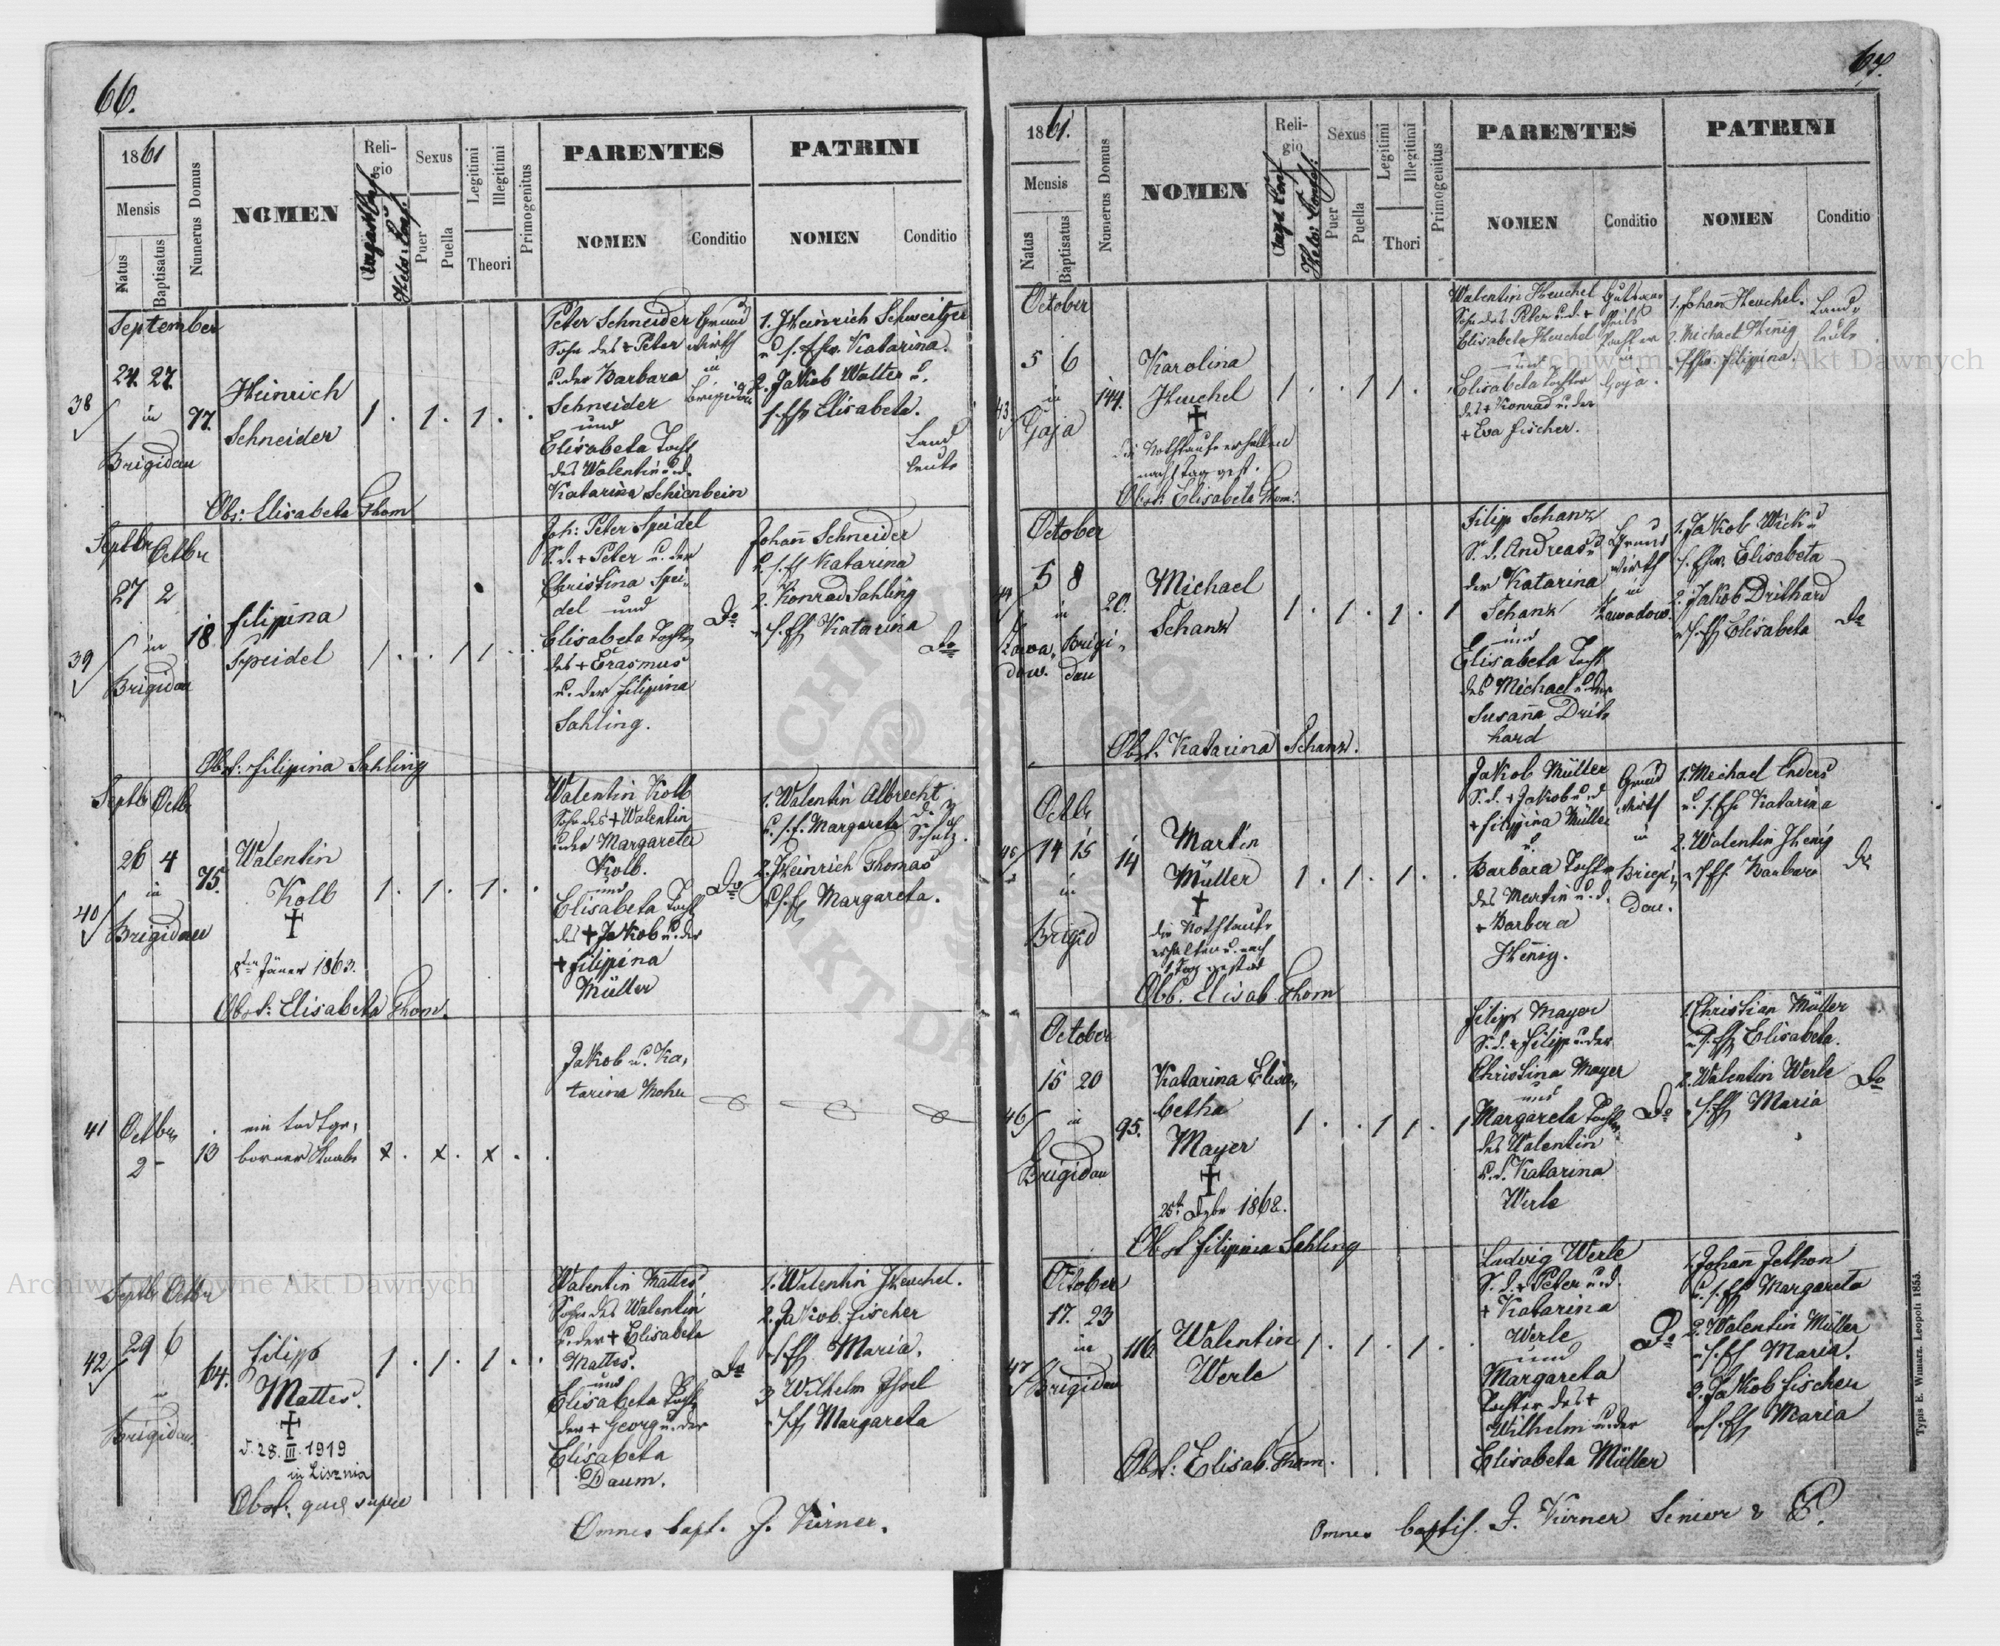 66.
1861
Mensis
Natus
Baptisatus
Numerus Domus
NOMEN
Religio
August. Conf.
Helv. Conf.
Sexus
Puer
Puella
Legitimi
Illegitimi
Theori
Primogenitus
PARENTES
NOMEN
Conditio
PATRINI
NOMEN
Conditio
September
38
24. 27.
in
Brigidau
77.
Heinrich
Schneider
1 . 1. 1. .
Peter Schneider
Sohn des + Peter
u. der Barbara
Schneider
und
Elisabeta Tocht
des Walentin u. d.
Katarina Schienbein
Grund
wirth
in
Brigidau
1. Heinrich Schweitzer
u. s. Ehw. Katarina.
2. Jakob Walter u.
s. Ehf Elisabeta.
Land
leute
Obs: Elisabeta Thom
Septbr Octbr
39
27 2
in
Brigidau
18
Filippina
Speidel
1 . . 1 1 . .
Joh: Peter Speidel
S. d. + Peter u. der
Christina Spei-
del und
Elisabeta Tocht
des + Erasmus
u. der Filippina
Sahling.
Do
Johann Schneider
u. s. Ef Katarina
2. Konrad Sahling
u. s. Ef Katarina
Do
Obst: Filippina Sahling
Septbr Octbr
40
26 4
in
Brigidau
75.
Walentin
Kolb
+
Jäner 1863.
1 . 1. 1. .
Walentin Kolb
Sohn des + Walentin
u. der Margareta
Kolb.
und
Elisabeta Tocht
des + Jakob u. der
+ Filippina
Müller
Do
1. Walentin Albrecht
u. s. f. Margareta
Schulz.
2. Heinrich Thomas
u. s. f. Margareta.
Obst: Elisabeta Thom.
41
Octbr
2 -
13
ein todtge-
borner Knabe
x . x . x . .
Jakob u. Ka-
tarina Mohr
Septbr Octbr
42
29 6
Brigidau
64.
Filipp
Mattes.
+
d. 28. III. 1919
in Lisznia
1 . 1 . 1 . .
Walentin Mattes
Sohn des Walentin
u. der + Elisabeta
Mattes.
und
Elisabeta Tocht
der + Georg u. der
Elisabeta
Daum.
Do
1. Walentin Heuchel.
2. Jakob Fischer
u. s. Ef. Maria.
3 Wilhelm
u. s. f. Margareta
Obst. quae supra
Omnes bapt. J. Kirner.
67.
1861.
Mensis
Natus
Baptisatus
Numerus Domus
NOMEN
Religio
Augs. Conf.
Helv. Conf.
Sexus
Puer
Puella
Legitimi
Illegitimi
Thori
Primogenitus
PARENTES
NOMEN
Conditio
PATRINI
NOMEN
Conditio
October
43
5 6
in
Gaja
144.
Karolina
Heuchel
+
die Nothtaufe erhalten
nach 1 Tag gest.
1 . . 1 1 .
Walentin Heuchel
Sohn des Peter u. d. +
Elisabeta Heuchel
und
Elisabeta Tochter
des + Konrad u. der
+ Eva Fischer.
in
Gaja.
1. Johann Heuchel.
2. Michael Hennig
u. s. Ehfr. Filippina
Land-
leute
Obst: Elisabeta Thom.
October
44
5 8
in
Zawa- Brigi-
dow. dau
20.
Michael
Schanz
1 . 1 . 1 . 1
Filipp Schanz
S. d. Andreas u.
der Katarina
Schanz
und
Elisabeta Tocht
des Michael u. der
Susanna Drit-
hard
Grund
wirth
in
Zawadow.
1. Jakob Wick u
s. Ehw. Elisabeta
2. Jakob Drithard
u. s. Ef Elisabeta
Do
Obst. Katarina Schanz.
Octbr
45
14 15
in
Brigid
14
Martin
Müller
+
die Nothtaufe
erhalten u. nach
1 Tag gestor
1 . 1 . 1 . .
Jakob Müller
S. d. + Jakob u. d
+ Filippina Müller
u.
Barbara Tochter
des Martin u. d.
+ Barbara
Hennig.
Grund
wirth
in
Brigi-
dau.
1. Michael Enders
u. s. Ehf Katarina
2. Walentin Hennig
u. s. Ef. Barbara
Do
Obst. Elisab. Thom
October
46
15 20
in
Brigidau
95.
Katarina Elisa-
betha
Mayer
+
25t Dzbr 1862.
1 . . 1 1 . 1
Filipp Mayer
S. d. + Filipp u. der
Christina Mayer
und
Margareta Tocht
des Walentin
u. d. Katarina
Werle
Do
1. Christian Müller
u. s. Ef Elisabeta.
2. Walentin Werle
u. s. Ef Maria
Do
Obst Filippina Sahling
October
47
17. 23
in
Brigidau
116.
Walentin
Werle
1 . 1 . 1 . .
Ludwig Werle
S. d. + Peter u. d.
+ Katarina
Werle
und
Margareta
Tochter des +
Wilhelm u. der
Elisabeta Müller
Do
1. Johann Jethon
u. s. Ef Margareta
2. Walentin Müller
u. s. Ef Maria.
3. Jakob Fischer
u. s. Ef Maria
Obst: Elisab. Thom.
Omnes baptis. J. Kirner Senior
Typis E. Winiarz. Leopoli 1853.
Archiwum Główne Akt Dawnych
Archiwum Główne Akt Dawnych